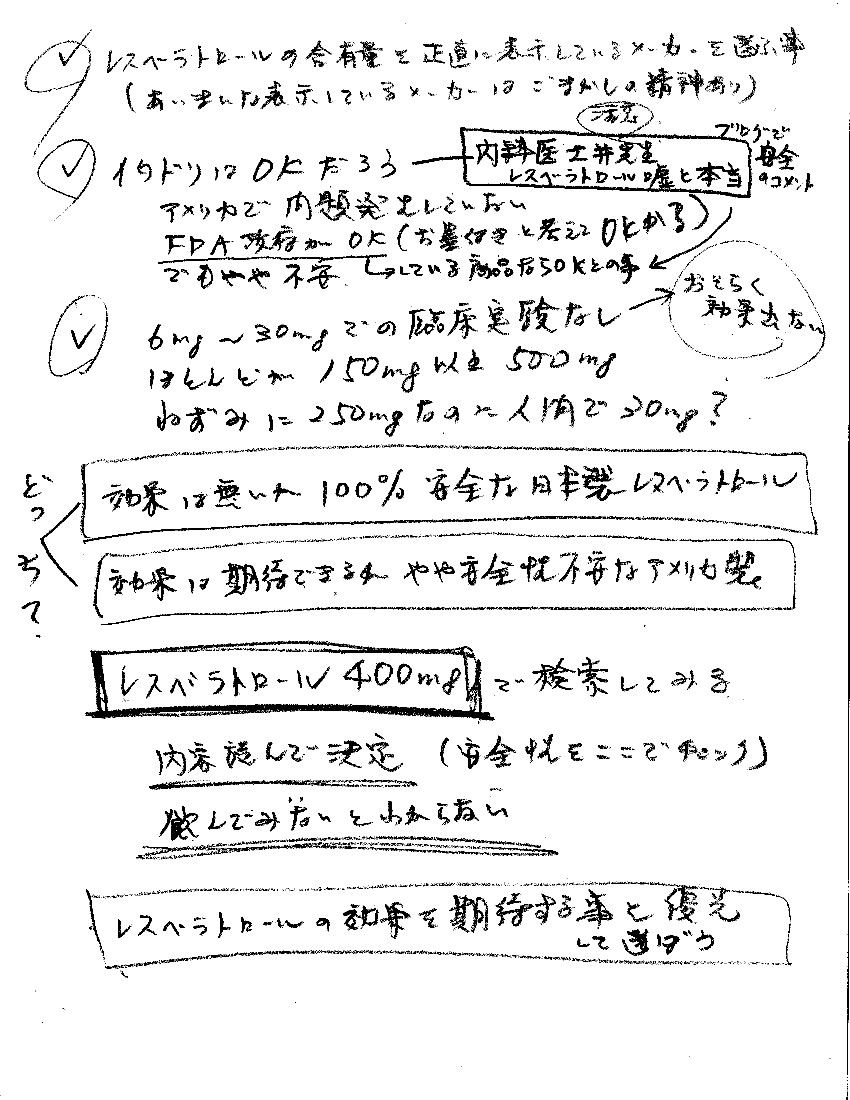 レスベラトロールの含有量を正直に表示しているメーカーを選ぶ事
(あいまいな表示しているメーカーはごまかしの精神あり)
注意
イタドリはOKだろう
内科医 土井先生
レスベラトロール嘘と本当
ブログで
安全
のコメント
アメリカで問題発生していない
FDA政府がOK(お墨付きと考えてOKかな)
でもやや不安
している商品ならOKとの事
6mg〜30mgでの臨床実験なし
おそらく
効果出ない
ほとんどが150mg以上500mg
ねずみに250mgなのに人間で30mg?
どっち?
効果は無いが100%安全な日本製レスベラトロール
効果は期待できるが やや安全性不安なアメリカ製
レスベラトロール400mg で検索してみる
内容読んで決定 (安全性をここでチェック)
飲んでみないとわからない
レスベラトロールの効果を期待する事を優先
して選ぼう